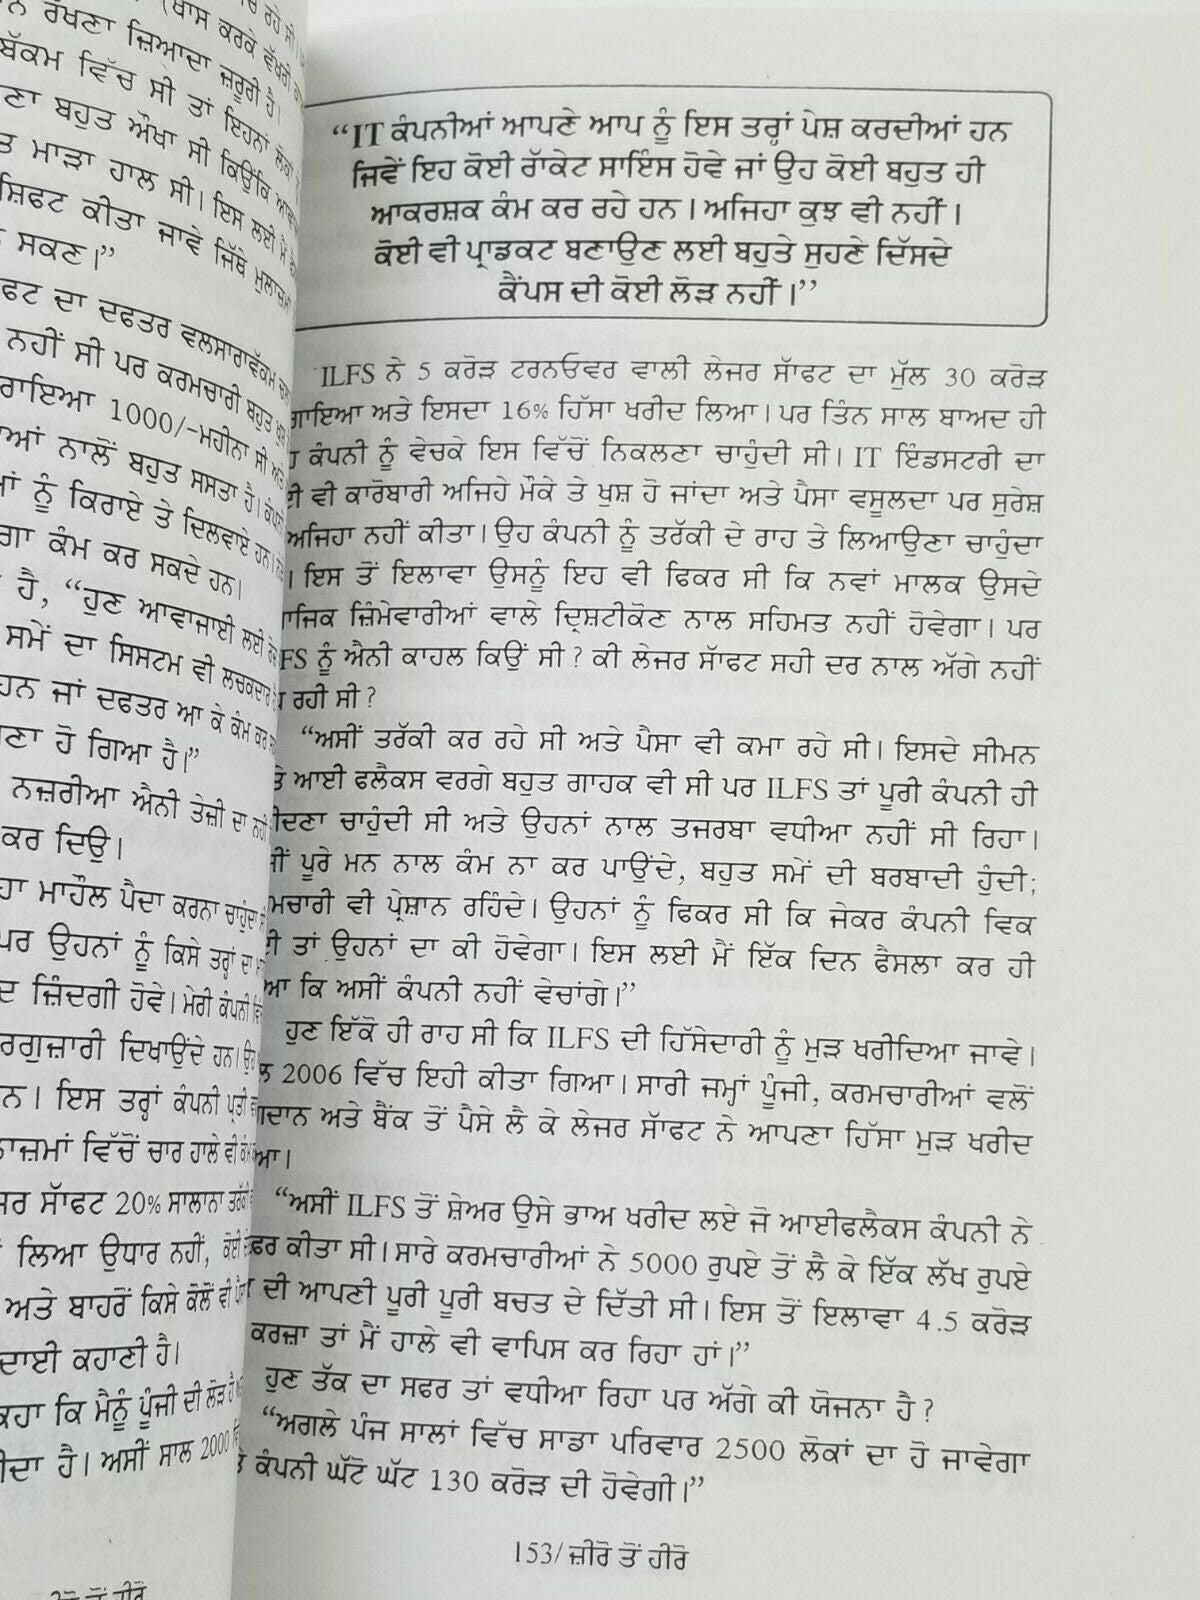 ਰਹੇ ਸੀ।
(ਖਾਸ ਕਰਕੇ ਵੱਖਰੀ
ਰੱਖਣਾ ਜ਼ਿਆਦਾ ਜ਼ਰੂਰੀ ਹੈ।
ਵਿੱਚ ਸੀ ਤਾਂ ਇਹਨਾਂ ਲੋਕਾਂ
ਬਹੁਤ ਔਖਾ ਸੀ ਕਿਉਂਕਿ
ਮਾੜਾ ਹਾਲ ਸੀ। ਇਸ ਲਈ ਮੈਂ
ਸ਼ਿਫਟ ਕੀਤਾ ਜਾਵੇ ਜਿੱਥੇ ਮੁਲਾਜ਼ਮਾਂ
ਸਕਣ।”
ਦਾ ਦਫਤਰ ਵਲਸਾਰਾਵੱਕਮ
ਨਹੀਂ ਸੀ ਪਰ ਕਰਮਚਾਰੀ ਬਹੁਤ
1000/-ਮਹੀਨਾ ਸੀ ਅਤੇ
ਨਾਲੋਂ ਬਹੁਤ ਸਸਤਾ ਹੈ।
ਨੂੰ ਕਿਰਾਏ ਤੇ ਦਿਲਵਾਏ ਹਨ।
ਕੰਮ ਕਰ ਸਕਦੇ ਹਨ।
ਹੈ, “ਹੁਣ ਆਵਾਜਾਈ ਲਈ
ਸਮੇਂ ਦਾ ਸਿਸਟਮ ਵੀ ਲਚਕਦਾਰ
ਹਨ ਜਾਂ ਦਫਤਰ ਆ ਕੇ ਕੰਮ ਕਰ
ਹੋ ਗਿਆ ਹੈ।”
ਨਜ਼ਰੀਆ ਐਨੀ ਤੇਜ਼ੀ ਦਾ ਨਹੀਂ
ਕਰ ਦਿਉ।
ਮਾਹੌਲ ਪੈਦਾ ਕਰਨਾ ਚਾਹੁੰਦਾ
ਪਰ ਉਹਨਾਂ ਨੂੰ ਕਿਸੇ ਤਰ੍ਹਾਂ ਦਾ
ਜ਼ਿੰਦਗੀ ਹੋਵੇ। ਮੇਰੀ ਕੰਪਨੀ
ਦਿਖਾਉਂਦੇ ਹਨ।
ਇਸ ਤਰ੍ਹਾਂ ਕੰਪਨੀ ਪ੍ਰਤੀ
ਵਿੱਚੋਂ ਚਾਰ ਹਾਲੇ ਵੀ ਕੰਮ
ਸਾੱਫਟ 20% ਸਾਲਾਨਾ ਤਰੱਕੀ
ਲਿਆ ਉਧਾਰ ਨਹੀਂ, ਕੋਈ
ਅਤੇ ਬਾਹਰੋਂ ਕਿਸੇ ਕੋਲੋਂ ਵੀ
ਕਹਾਣੀ ਹੈ।
ਕਿ ਮੈਨੂੰ ਪੂੰਜੀ ਦੀ ਲੋੜ ਹੈ
ਹੈ। ਅਸੀਂ ਸਾਲ 2000
“IT ਕੰਪਨੀਆਂ ਆਪਣੇ ਆਪ ਨੂੰ ਇਸ ਤਰ੍ਹਾਂ ਪੇਸ਼ ਕਰਦੀਆਂ ਹਨ
ਜਿਵੇਂ ਇਹ ਕੋਈ ਰਾੱਕੇਟ ਸਾਇੰਸ ਹੋਵੇ ਜਾਂ ਉਹ ਕੋਈ ਬਹੁਤ ਹੀ
ਆਕਰਸ਼ਕ ਕੰਮ ਕਰ ਰਹੇ ਹਨ। ਅਜਿਹਾ ਕੁਝ ਵੀ ਨਹੀਂ।
ਕੋਈ ਵੀ ਪ੍ਰਾਡਕਟ ਬਣਾਉਣ ਲਈ ਬਹੁਤੇ ਸੁਹਣੇ ਦਿੱਸਦੇ
ਕੈਂਪਸ ਦੀ ਕੋਈ ਲੋੜ ਨਹੀਂ।”
ILFS ਨੇ 5 ਕਰੋੜ ਟਰਨਓਵਰ ਵਾਲੀ ਲੇਜਰ ਸਾੱਫਟ ਦਾ ਮੁੱਲ 30 ਕਰੋੜ
ਗਾਇਆ ਅਤੇ ਇਸਦਾ 16% ਹਿੱਸਾ ਖਰੀਦ ਲਿਆ। ਪਰ ਤਿੰਨ ਸਾਲ ਬਾਅਦ ਹੀ
ਕੰਪਨੀ ਨੂੰ ਵੇਚਕੇ ਇਸ ਵਿੱਚੋਂ ਨਿਕਲਣਾ ਚਾਹੁੰਦੀ ਸੀ। IT ਇੰਡਸਟਰੀ ਦਾ
ਵੀ ਕਾਰੋਬਾਰੀ ਅਜਿਹੇ ਮੌਕੇ ਤੇ ਖੁਸ਼ ਹੋ ਜਾਂਦਾ ਅਤੇ ਪੈਸਾ ਵਸੂਲਦਾ ਪਰ ਸੁਰੇਸ਼
ਅਜਿਹਾ ਨਹੀਂ ਕੀਤਾ। ਉਹ ਕੰਪਨੀ ਨੂੰ ਤਰੱਕੀ ਦੇ ਰਾਹ ਤੇ ਲਿਆਉਣਾ ਚਾਹੁੰਦਾ
। ਇਸ ਤੋਂ ਇਲਾਵਾ ਉਸਨੂੰ ਇਹ ਵੀ ਫਿਕਰ ਸੀ ਕਿ ਨਵਾਂ ਮਾਲਕ ਉਸਦੇ
ਾਜਿਕ ਜ਼ਿੰਮੇਵਾਰੀਆਂ ਵਾਲੇ ਦ੍ਰਿਸ਼ਟੀਕੋਣ ਨਾਲ ਸਹਿਮਤ ਨਹੀਂ ਹੋਵੇਗਾ। ਪਰ
FS ਨੂੰ ਐਨੀ ਕਾਹਲ ਕਿਉਂ ਸੀ? ਕੀ ਲੇਜਰ ਸਾੱਫਟ ਸਹੀ ਦਰ ਨਾਲ ਅੱਗੇ ਨਹੀਂ
ਰਹੀ ਸੀ?
“ਅਸੀਂ ਤਰੱਕੀ ਕਰ ਰਹੇ ਸੀ ਅਤੇ ਪੈਸਾ ਵੀ ਕਮਾ ਰਹੇ ਸੀ। ਇਸਦੇ ਸੀਮਨ
ਤੇ ਆਈ ਫਲੈਕਸ ਵਰਗੇ ਬਹੁਤ ਗਾਹਕ ਵੀ ਸੀ ਪਰ ILFS ਤਾਂ ਪੂਰੀ ਕੰਪਨੀ ਹੀ
ੀਦਣਾ ਚਾਹੁੰਦੀ ਸੀ ਅਤੇ ਉਹਨਾਂ ਨਾਲ ਤਜਰਬਾ ਵਧੀਆ ਨਹੀਂ ਸੀ ਰਿਹਾ।
ਪੂਰੇ ਮਨ ਨਾਲ ਕੰਮ ਨਾ ਕਰ ਪਾਉਂਦੇ, ਬਹੁਤ ਸਮੇਂ ਦੀ ਬਰਬਾਦੀ ਹੁੰਦੀ;
ਮਚਾਰੀ ਵੀ ਪ੍ਰੇਸ਼ਾਨ ਰਹਿੰਦੇ। ਉਹਨਾਂ ਨੂੰ ਫਿਕਰ ਸੀ ਕਿ ਜੇਕਰ ਕੰਪਨੀ ਵਿਕ
ਤਾਂ ਉਹਨਾਂ ਦਾ ਕੀ ਹੋਵੇਗਾ। ਇਸ ਲਈ ਮੈਂ ਇੱਕ ਦਿਨ ਫੈਸਲਾ ਕਰ ਹੀ
ਆ ਕਿ ਅਸੀਂ ਕੰਪਨੀ ਨਹੀਂ ਵੇਚਾਂਗੇ।”
ਹੁਣ ਇੱਕੋ ਹੀ ਰਾਹ ਸੀ ਕਿ ILFS ਦੀ ਹਿੱਸੇਦਾਰੀ ਨੂੰ ਮੁੜ ਖਰੀਦਿਆ ਜਾਵੇ।
ਲ 2006 ਵਿੱਚ ਇਹੀ ਕੀਤਾ ਗਿਆ। ਸਾਰੀ ਜਮ੍ਹਾਂ ਪੂੰਜੀ, ਕਰਮਚਾਰੀਆਂ ਵਲੋਂ
ਗਦਾਨ ਅਤੇ ਬੈਂਕ ਤੋਂ ਪੈਸੇ ਲੈ ਕੇ ਲੇਜਰ ਸਾੱਫਟ ਨੇ ਆਪਣਾ ਹਿੱਸਾ ਮੁੜ ਖਰੀਦ
ਆ।
“ਅਸੀਂ ILFS ਤੋਂ ਸ਼ੇਅਰ ਉਸੇ ਭਾਅ ਖਰੀਦ ਲਏ ਜੋ ਆਈਫਲੈਕਸ ਕੰਪਨੀ ਨੇ
ਫਰ ਕੀਤਾ ਸੀ। ਸਾਰੇ ਕਰਮਚਾਰੀਆਂ ਨੇ 5000 ਰੁਪਏ ਤੋਂ ਲੈ ਕੇ ਇੱਕ ਲੱਖ ਰੁਪਏ
ਦੀ ਆਪਣੀ ਪੂਰੀ ਪੂਰੀ ਬਚਤ ਦੇ ਦਿੱਤੀ ਸੀ। ਇਸ ਤੋਂ ਇਲਾਵਾ 4.5 ਕਰੋੜ
ਕਰਜ਼ਾ ਤਾਂ ਮੈਂ ਹਾਲੇ ਵੀ ਵਾਪਿਸ ਕਰ ਰਿਹਾ ਹਾਂ।”
ਹੁਣ ਤੱਕ ਦਾ ਸਫਰ ਤਾਂ ਵਧੀਆ ਰਿਹਾ ਪਰ ਅੱਗੇ ਕੀ ਯੋਜਨਾ ਹੈ?
“ਅਗਲੇ ਪੰਜ ਸਾਲਾਂ ਵਿੱਚ ਸਾਡਾ ਪਰਿਵਾਰ 2500 ਲੋਕਾਂ ਦਾ ਹੋ ਜਾਵੇਗਾ
ਤੇ ਕੰਪਨੀ ਘੱਟੋ ਘੱਟ 130 ਕਰੋੜ ਦੀ ਹੋਵੇਗੀ।”
153/ਜ਼ੀਰੋ ਤੋਂ ਹੀਰੋ